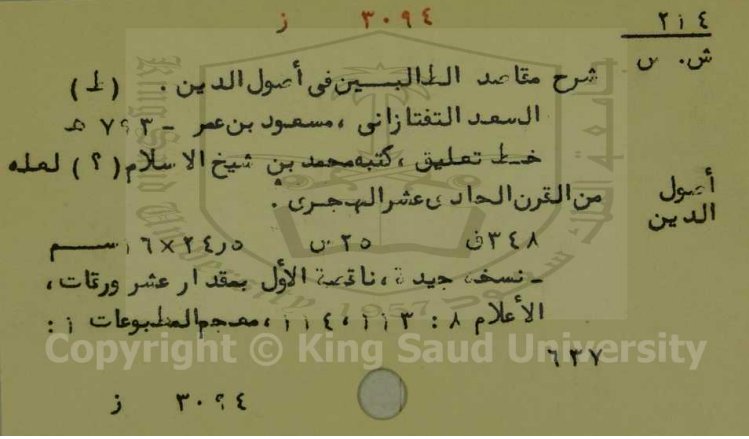 ٢١٤
ش. س
٣٠٩٤ ز
شرح مقاصد الطالبين في أصول الدين . (ط)
السعد التفتازاني ، مسعود بن عمر - ٧٩٣ هـ
خط تعليق ، كتبه محمد بن شيخ الاسلام (؟) لعله
من القرن الحادى عشر الهجرى .
أصول
الدين
٣٤٨ ق ٢٥ س ٢٤٫٥×١٦ سم
- نسخة جيدة ، ناقصة الأول بمقدار عشر ورقات ،
الأعلام ٨ : ١١٣ ، ١١٤ ، معجم المطبوعات ١ :
٦٣٧
٣٠٩٤ ز
King Saud University
1957
Copyright © King Saud University